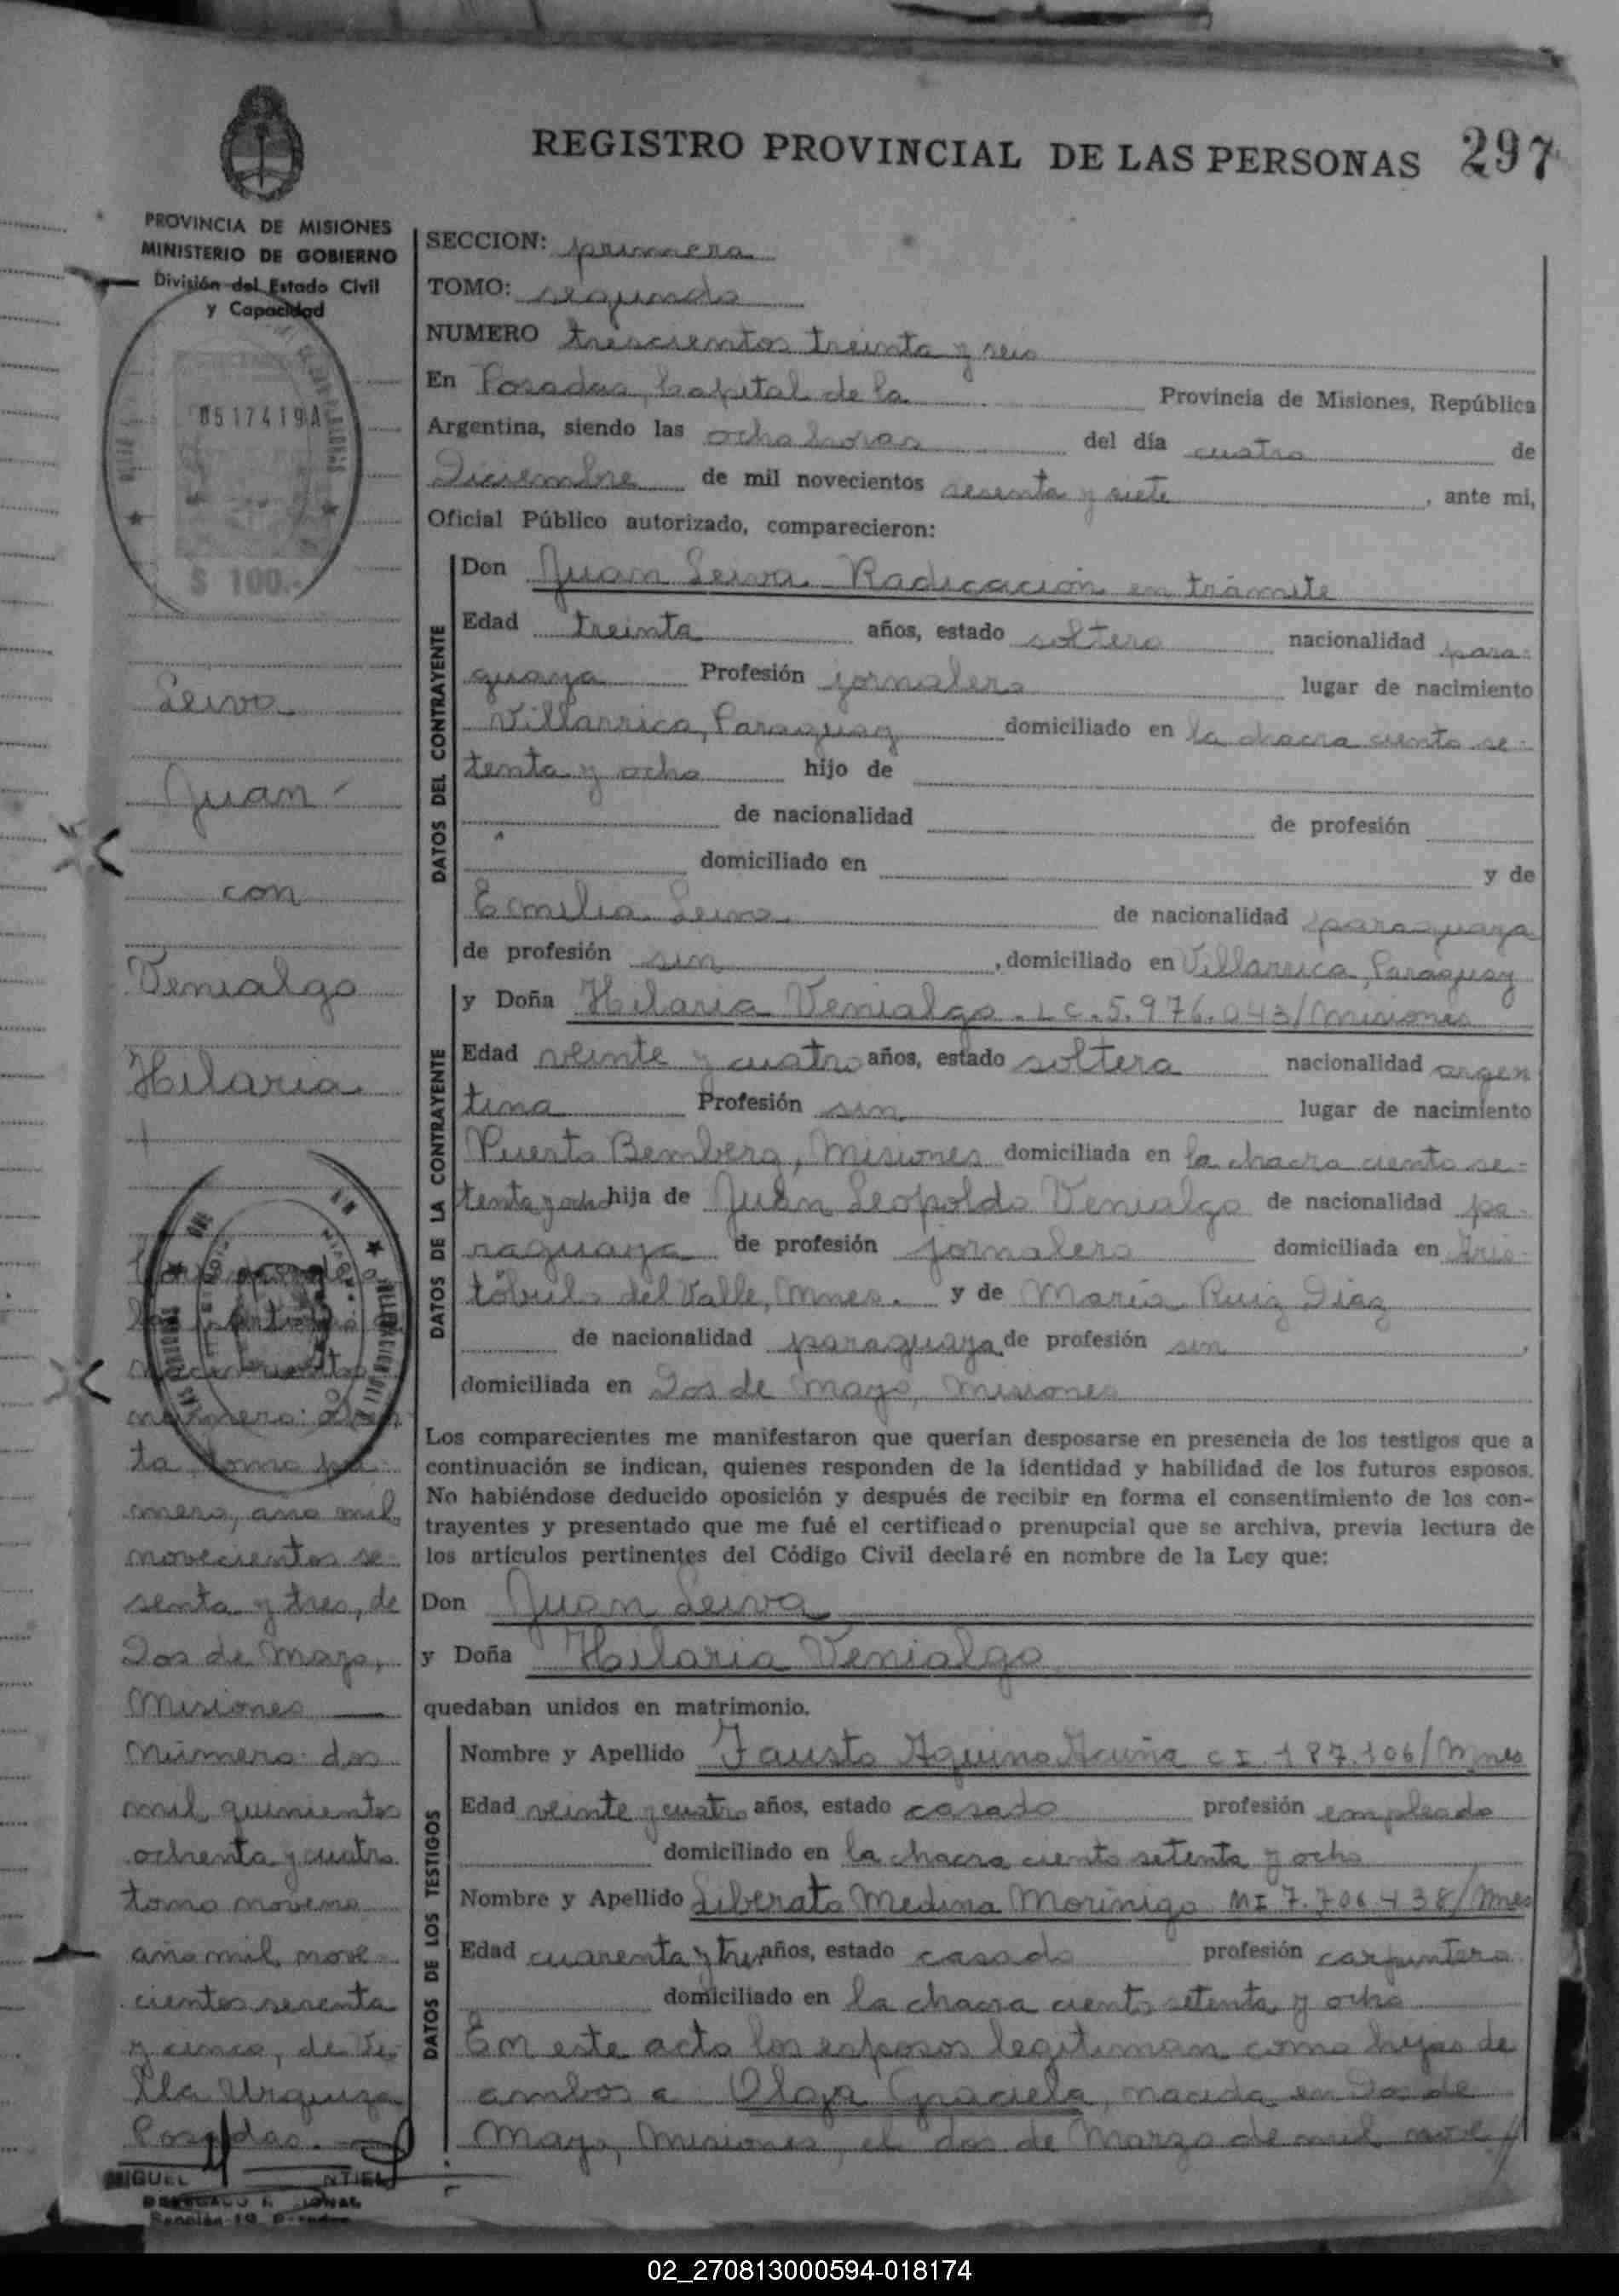 REGISTRO PROVINCIAL DE LAS PERSONAS 297
PROVINCIA DE MISIONES
MINISTERIO DE GOBIERNO
División del Estado Civil
y Capacidad
0517419A
$ 100.-
Leiva
Juan
con
Venialgo
Hilaria
mero, año mil
novecientos se-
senta y tres, de
Dos de Mayo,
Misiones
Número dos
mil quinientos
ochenta y cuatro
tomo noveno
año mil nove-
cientos sesenta
y cinco, de Vi-
lla Urquiza
Posadas.
MIGUEL
SECCION: primera
TOMO: segundo
NUMERO trescientos treinta y seis
En Posadas, Capital de la Provincia de Misiones, República
Argentina, siendo las ocho horas del día cuatro de
Diciembre de mil novecientos sesenta y siete, ante mi,
Oficial Público autorizado, comparecieron:
DATOS DEL CONTRAYENTE
Don Juan Leiva. Radicación en trámite
Edad treinta años, estado soltero nacionalidad para-
guaya Profesión jornalero lugar de nacimiento
Villarrica, Paraguay domiciliado en la chacra ciento se-
tenta y ocho hijo de
de nacionalidad de profesión
domiciliado en y de
Emilia Leiva de nacionalidad paraguaya
de profesión sin, domiciliado en Villarrica, Paraguay
DATOS DE LA CONTRAYENTE
y Doña Hilaria Venialgo. LC. 5.976.043/Misiones
Edad veinte y cuatro años, estado soltera nacionalidad argen
tina Profesión sin lugar de nacimiento
Puerto Bemberg, Misiones domiciliada en la chacra ciento se-
tenta y ocho hija de Juan Leopoldo Venialgo de nacionalidad pa-
raguaya de profesión jornalero domiciliada en Aris-
tóbulo del Valle, Mnes. y de María Ruiz Diaz
de nacionalidad paraguaya de profesión sin,
domiciliada en Dos de Mayo, Misiones
Los comparecientes me manifestaron que querían desposarse en presencia de los testigos que a
continuación se indican, quienes responden de la identidad y habilidad de los futuros esposos.
No habiéndose deducido oposición y después de recibir en forma el consentimiento de los con-
trayentes y presentado que me fué el certificado prenupcial que se archiva, previa lectura de
los artículos pertinentes del Código Civil declaré en nombre de la Ley que:
Don Juan Leiva
y Doña Hilaria Venialgo
quedaban unidos en matrimonio.
DATOS DE LOS TESTIGOS
Nombre y Apellido Fausto Aquino Acuña CI. 187.106/Mnes
Edad veinte y cuatro años, estado casado profesión empleado
domiciliado en la chacra ciento setenta y ocho
Nombre y Apellido Liberato Medina Morinigo MI 7.706.438/Mnes
Edad cuarenta y tres años, estado casado profesión carpintero
domiciliado en la chacra ciento setenta y ocho
En este acto los esposos legitiman como hijas de
ambos a Olga Graciela, nacida en Dos de
Mayo, Misiones, el dos de Marzo de mil nove
02_270813000594-018174